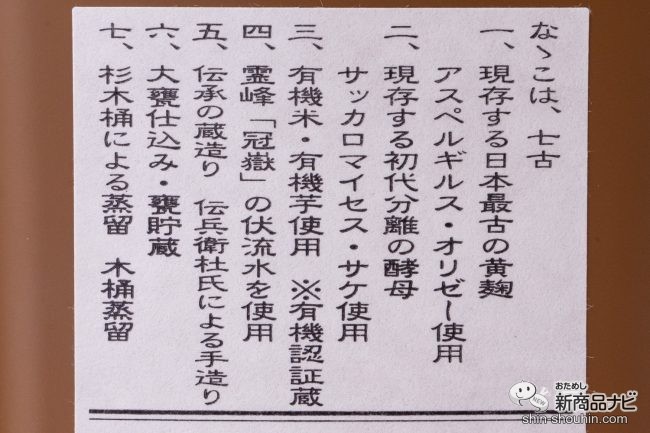 なゝこは、七古
一、現存する日本最古の黄麹
アスペルギルス・オリゼー使用
二、現存する初代分離の酵母
サッカロマイセス・サケ使用
三、有機米・有機芋使用　※有機認証蔵
四、霊峰「冠嶽」の伏流水を使用
五、伝承の蔵造り　伝兵衛杜氏による手造り
六、大甕仕込み・甕貯蔵
七、杉木桶による蒸留　木桶蒸留
NEW
おためし
新商品ナビ
shin-shouhin.com